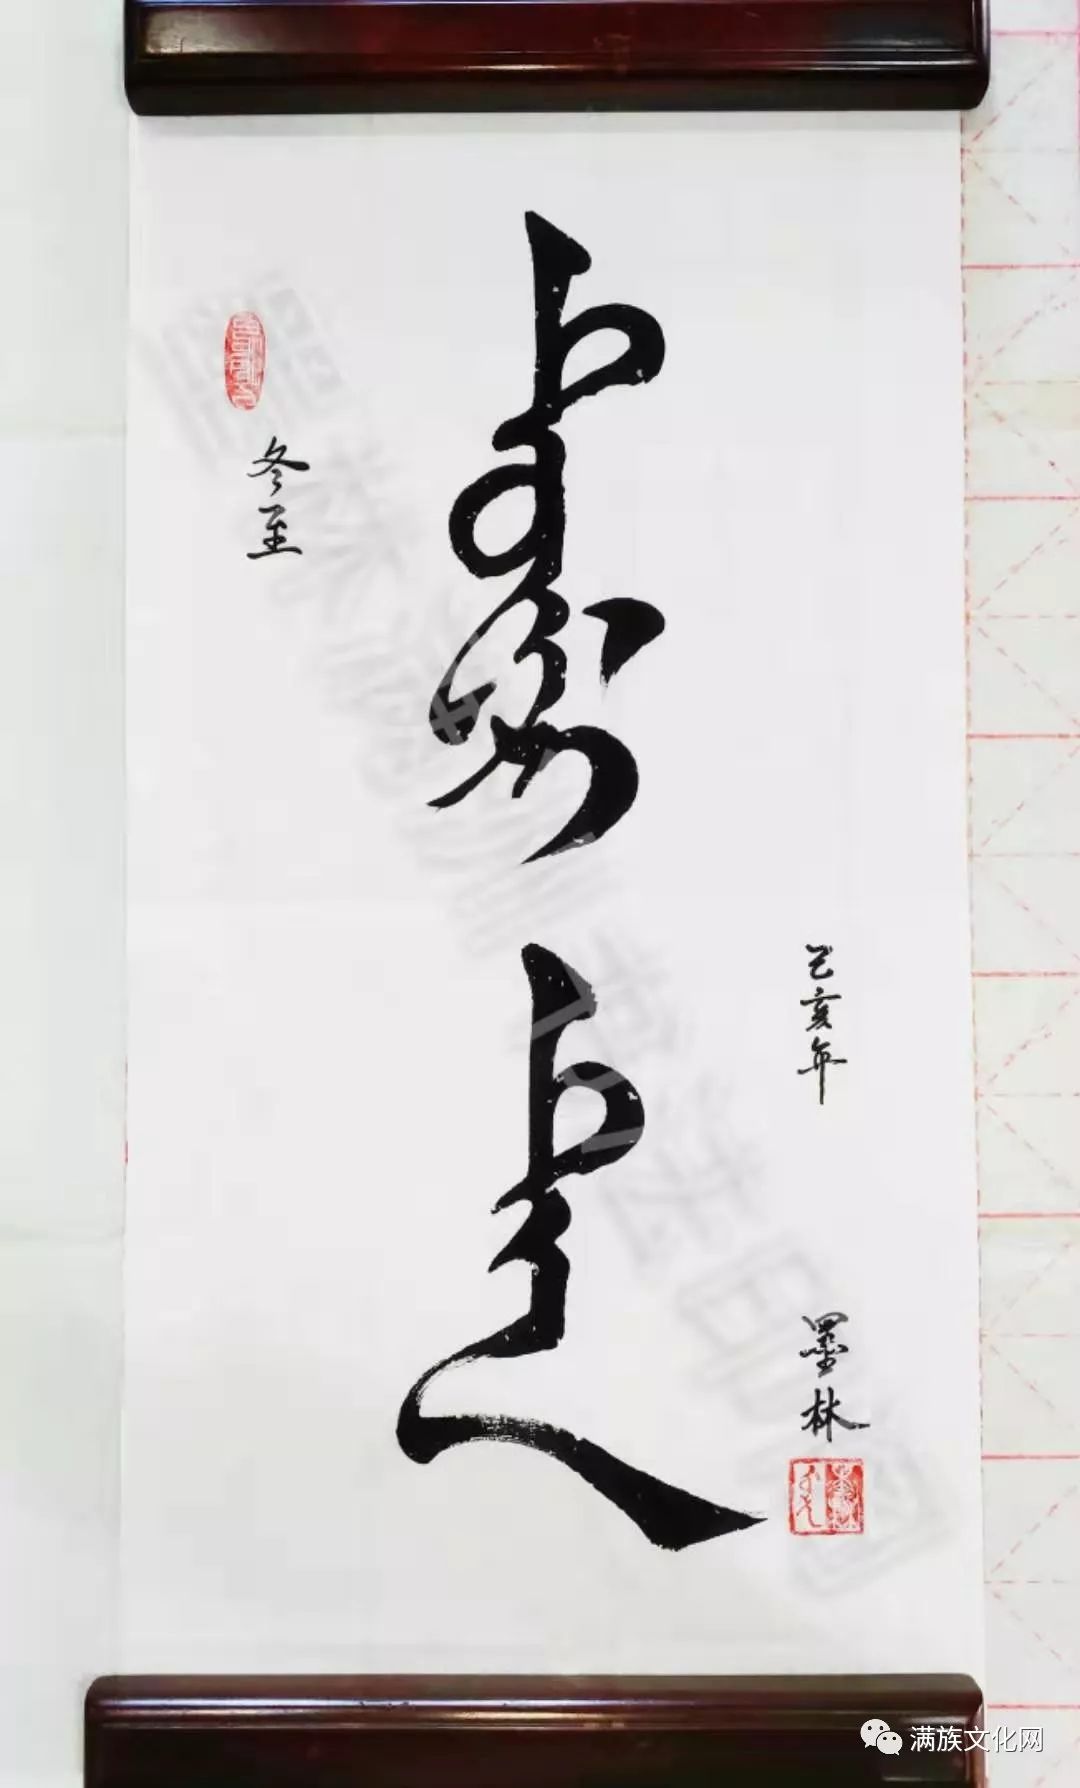 冬至
ᡨᡠᠸᡝᡵᡳ
ᡨᡝᠨ
己亥年
墨林
满族文化网